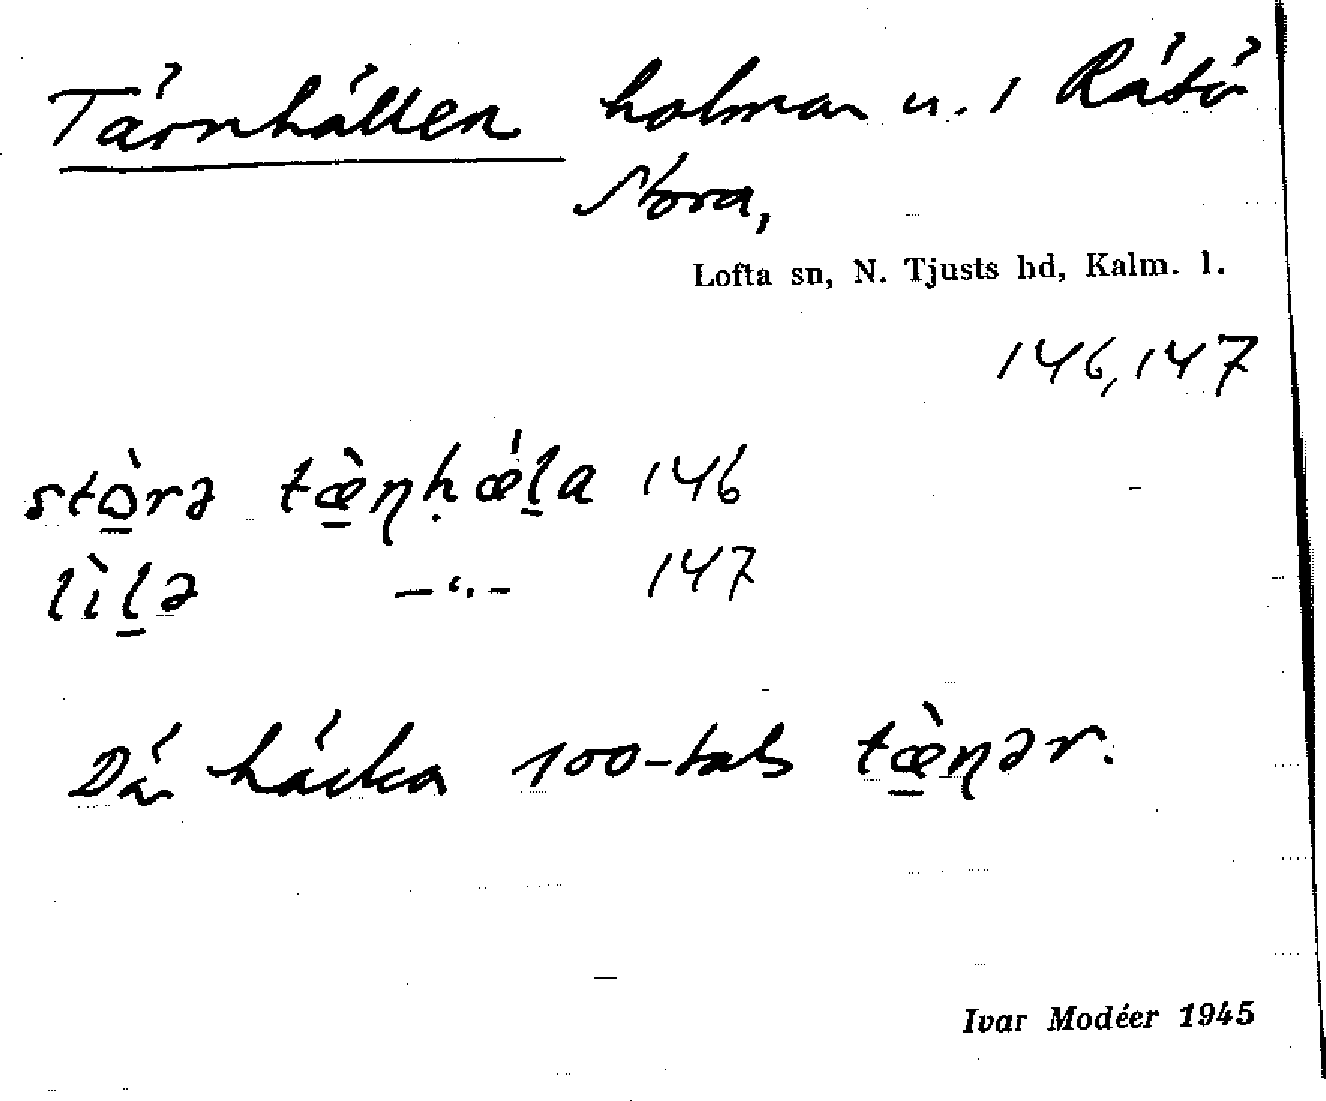 Tärnhällen holmar u. 1 Rätö
Nora,
Lofta sn, N. Tjusts hd, Kalm. l.
146, 147
stò̲rə tæ̲̀ɳḥǽl̲a 146
lìl̲ə –"– 147
Där häcka 100-tals tæ̲̀ɳər.
Ivar Modéer 1945